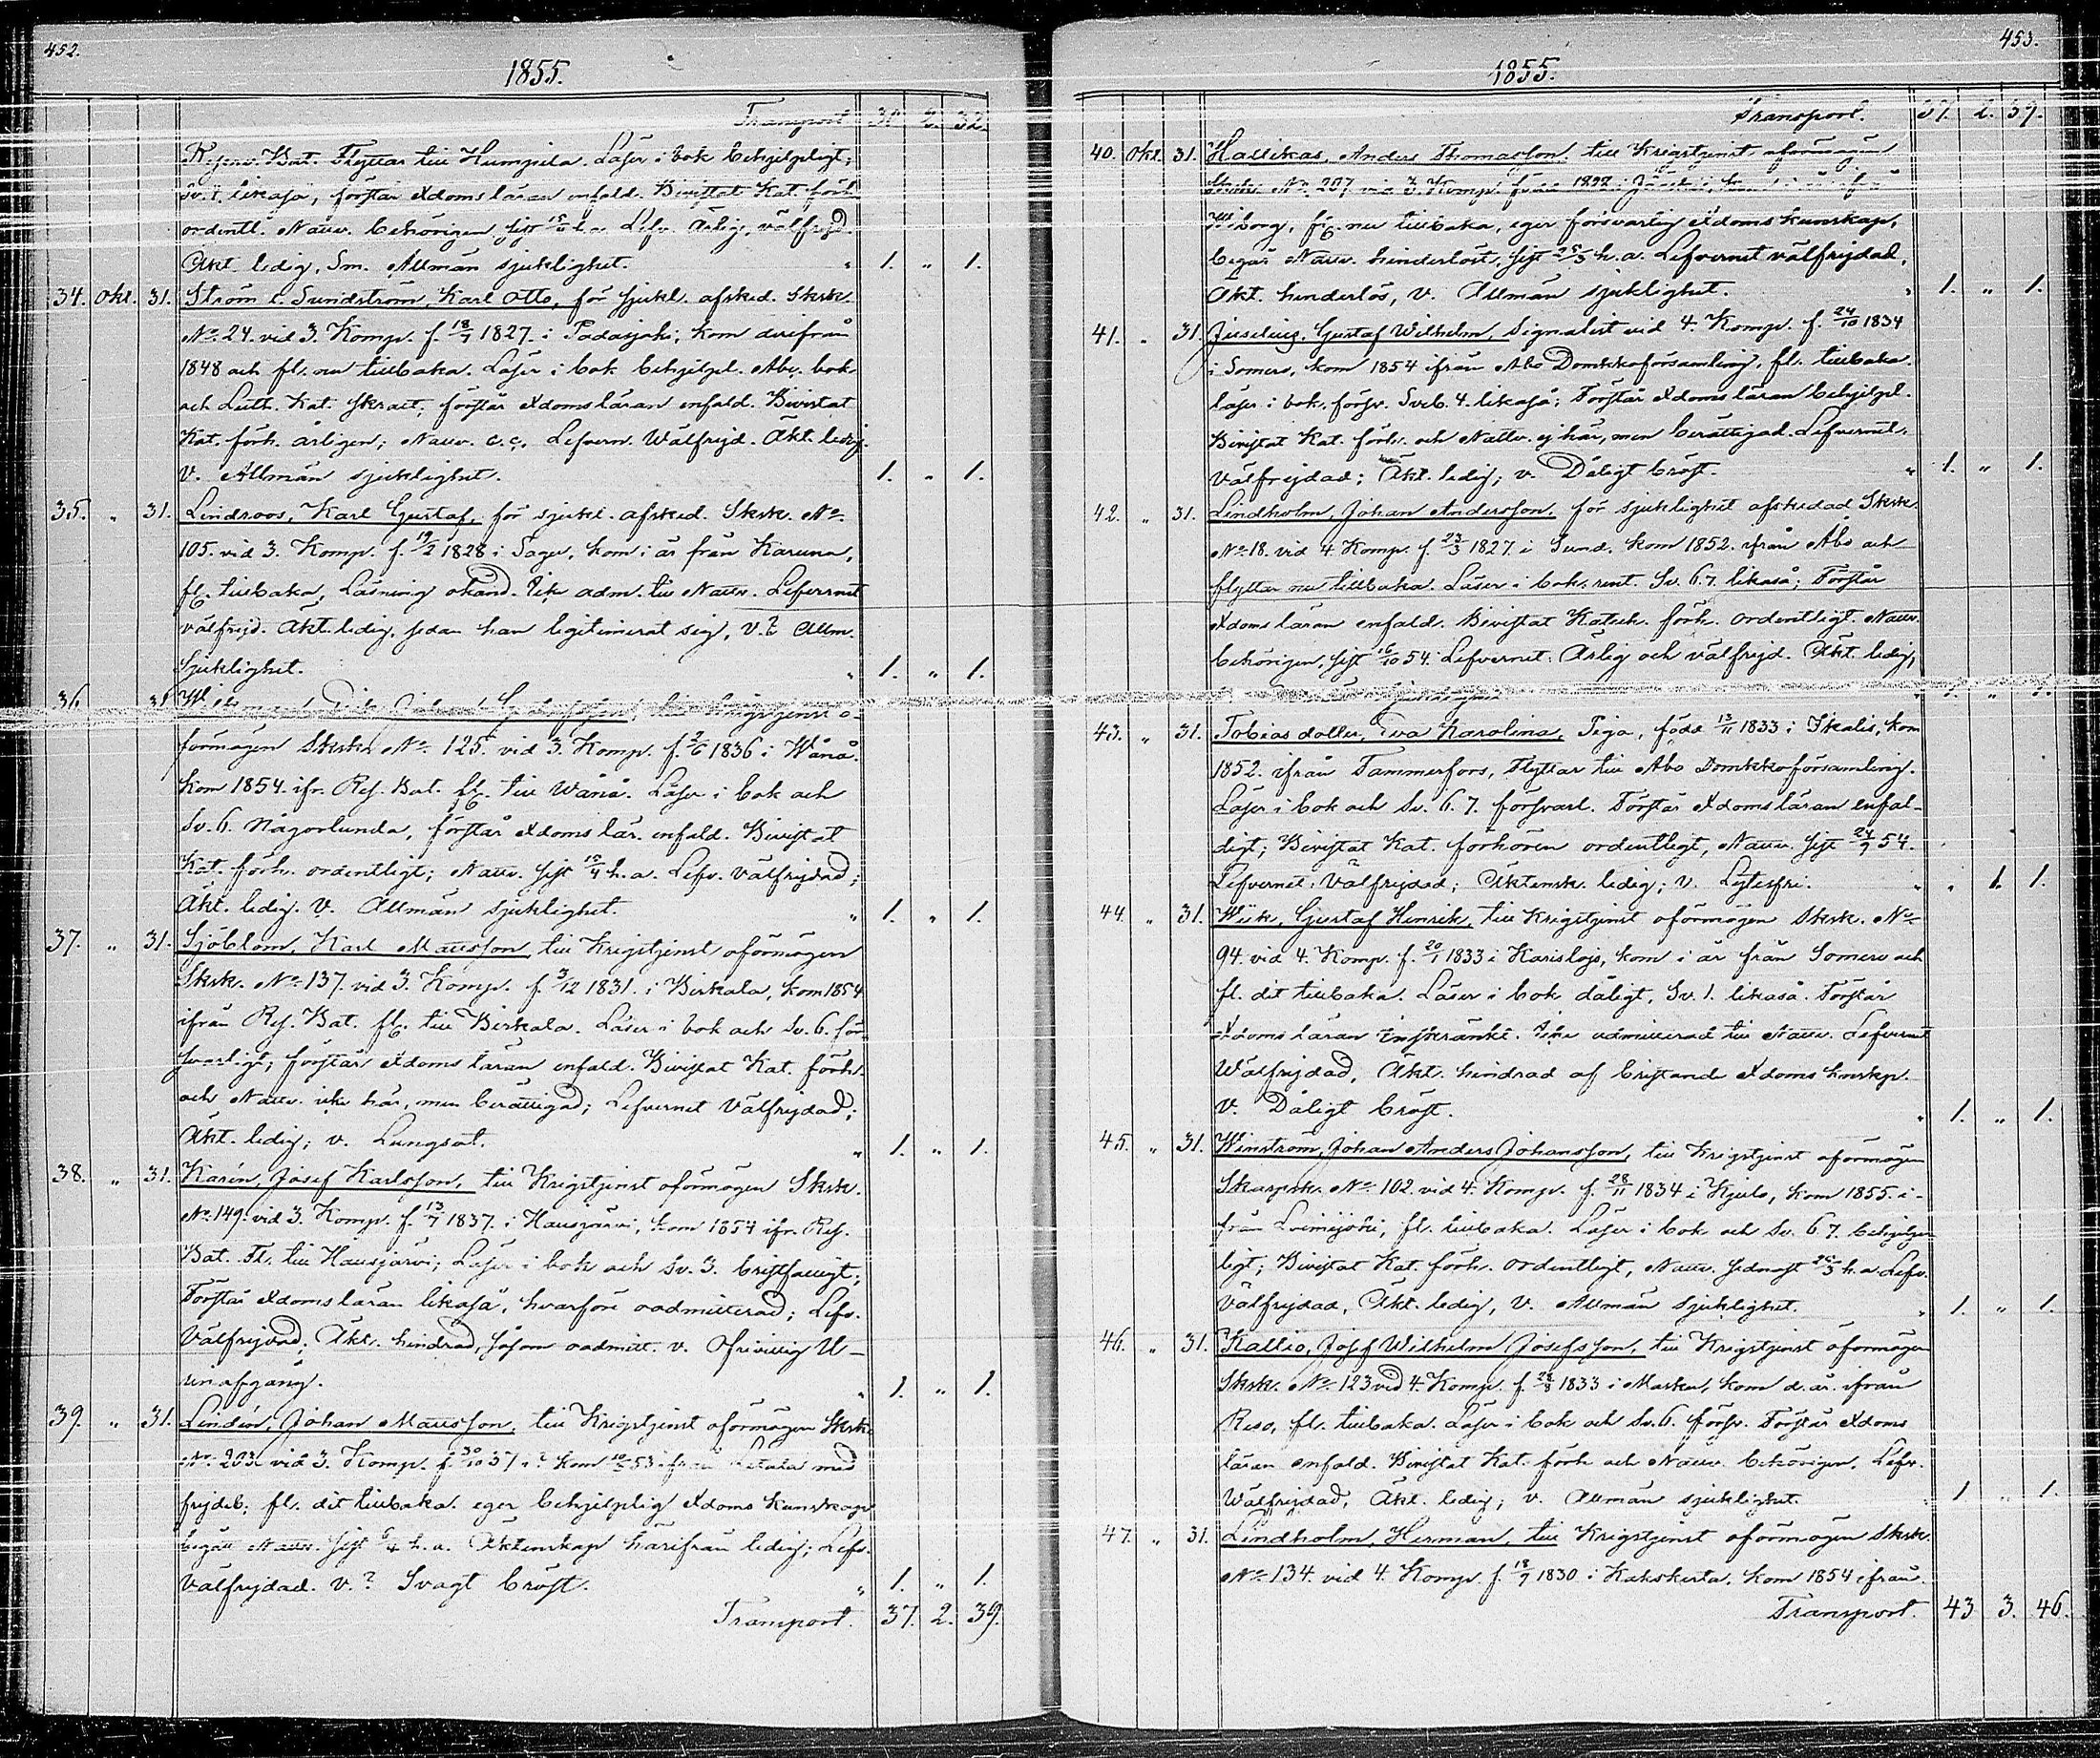 452.
1855.
Transport 31 2. 32.
Reserv. Bat. Flyttar till Humpila. Läser i bok behjelpligt;
Sv. 1. likaså, förstår Xdomsläran enfald. Bivistat Kat. förh.
ordentl. Nattv. behörigen sist h.a. Lefv. Ärlig, välfrejd.
Äkt. ledig, Sm. Allmän sjuklighet. " 1. " 1.
34. Okt. 31. Ström l. Sundström, Karl Otto, för sjukl. afsked. Skrk.
No. 24. vid 3. Komp. f. 18/7 1827. i Padasjoki, kom derifrån
1848 och fl. nu tillbaka. Läser i bok behjelpl. Abc. bok
och Luth. Kat. skralt; förstår Xdomsläran enfald. Bivistat
Kat. förh. årligen; Nattv. c.c. Lefvern. Wälfrejd. Äkt. ledig.
V. Allmän sjuklighet. 1. " 1.
35. " 31. Lindroos, Karl Gustaf, för sjukl. afsked. Skrk. No.
105. vid 3. Komp. f. 19/2 1828 i Sagu, kom i år från Karuna,
fl. tillbaka, Läsning okänd. Icke adm. till Nattv. Lefvernet
välfrejd. Äkt. ledig, sedan han legitimerat sig, V.? Allm.
Sjuklighet. " 1. " 1.
36. 31. till krigstjenst o-
förmögen Skrsk. No. 125. vid 3. Komp. f. 2/6 1836 i Wånå.
Kom 1854. ifr. Res. Bat. fl. till Wånå. Läser i bok och
Sv. 6. någorlunda, förstår Xdoms lär. enfald. Bivistat
Kat. förh. ordentligt; Nattv. sist 15/4 h.a. Lefv. välfrejdad;
Äkt. ledig. V. Allmän sjuklighet. " 1. " 1.
37. " 31. Sjöblom, Karl Mattsson, till Krigstjenst oförmögen
Skrk. No. 137. vid 3. Komp. f. 3/12 1831. i Birkala, kom 1854
ifrån Res. Bat. fl. till Birkala. Läser i bok och Sv. 6. för-
svarligt; förstår Xdoms läran enfald. Bivistat Kat. förh.
och Nattv. icke här, men berättigad; Lefvernet Välfrejdad;
Äkt. ledig; v. Lungsot. " 1. " 1.
38. " 31. Karén, Josef Karlsson, till Krigstjenst oförmögen Skrk.
No. 149. vid 3. Komp. f. 13/7 1837. i Hausjärvi, kom 1854 ifr. Res.
Bat. Fl. till Hausjärvi; Läser i bok och Sv. 3. bristfälligt;
Förstår Xdomsläran likaså, hvarföre oadmitterad; Lefv.
Välfrejdad. Äkt. hindrad, såsom oadmitt. v. Ofrivillig U-
rinafgång. " 1. " 1.
39. " 31. Lindén, Johan Mattsson, till Krigstjenst oförmögen Skrk.
No. 203. vid 3. Komp. f. 30/10 37 i ? kom 53. ifrån Letala med
frejdeb. fl. dit tillbaka. eger behjelplig Xdoms kunskap
begått Nattv. sist 6/4 h.a. Äktenskap härifrån ledig; Lefv.
Välfrejdad. v.? Svagt bröst. " 1. " 1.
Transport. 37. 2. 39.
453.
1855.
Transport. 37. 2. 39.
40. Okt. 31. Hallikas, Anders Thomasson, till Krigstjenst oförmögen
Skrk. No. 207 vid 3. Komp.
Wiborg, fl. nu tillbaka, eger försvarlig Xdoms kunskap,
begår Nattv. hinderlöst, sist 25/3 h.a. Lefvernet välfrejdad,
Äkt. hinderlös, v. Allmän sjuklighet. " 1. " 1.
41. " 31. Juselius, Gustaf Wilhelm, Signalist vid 4. Komp. f. 24/10 1834
i Somero, kom 1854 ifrån Åbo Domkkoförsamling, fl. tillbaka.
läser i bok. försv. Sveb. 4. likaså; Förstår Xdoms läran behjelpl.
Bivistat Kat. förh. och Nattv. ej här, men berättigad. Lefvernet.
välfrejdad; Äkt. ledig; v. Dåligt bröst. " 1. " 1.
42. " 31. Lindholm, Johan Andersson, för sjuklighet afskedad Skrk.
No. 18. vid 4. Komp. f. 23/3 1827. i Sund. kom 1852. ifrån Åbo och
flyttar nu tillbaka. Läser i bok. rent. Sv. 6.7. likaså; Förstår
Xdoms läran enfald. Bivistat Katech. förh. ordentligt. Nattv.
behörigen, sist 16/10 54. Lefvernet: Ärlig och välfrejd. Äkt. ledig,
" 1. " 1.
43. " 31. Tobiasdotter, Eva Karolina, Piga, född 13/11 1833 i Ikalis, kom
1852. ifrån Tammerfors, Flyttar till Åbo Domkkoförsamling.
Läser i bok och Sv. 6. 7. försvarl. Förstår Xdomsläran enfal-
digt; Bivistat Kat. förhören ordentligt, Nattv. sist 24/9 54.
Lefvernet: Välfrejdad; Äktensk. ledig; v. Lytesfri. " " 1. 1.
44. " 31. Wiik, Gustaf Henrik, till Krigstjenst oförmögen Skrk. No.
94. vid 4. Komp. f. 20/1 1833 i Karislojo, kom i år från Somero och
fl. dit tillbaka. Läser i bok dåligt, Sv. 1. likaså. Förstår
Xdoms läran inskränkt. Icke admitterad till Nattv. Lefvernet
Wälfrejdad, Äkt. hindrad af bristande Xdoms knskp.
V. Dåligt bröst. " 1. " 1.
45. " 31. Winström, Johan Anders Johansson, till Krigstjenst oförmögen
Skarpsk. No. 102. vid 4. Komp. f. 28/11 1834 i Kjulo, kom 1855. i-
från Loimijoki, fl. tillbaka. Läser i bok och Sv. 6 7. behjelp-
ligt; Bivistat Kat. förh. ordentligt, Nattv. sednast 25/3 h.a. Lefv.
Välfrejdad, Äkt. ledig, V. Allmän sjuklighet. " 1. " 1.
46. " 31. Kallio, Josef Wilhelm Josefsson, till Krigstjenst oförmögen
Skrk. No. 123 vid 4. Komp. f. 1833 i Masku, kom d. år. ifrån
Reso, fl. tillbaka. Läser i bok och Sv. 6. försv. Förstår Xdoms
läran enfald. Bivistat Kat. förh och Nattv. behörigen, Lefv.
Wälfrejdad, Äkt. ledig; v. Allmän sjuklighet. " 1 " 1.
47. " 31. Lindholm, Herman, till Krigstjenst oförmögen Skrk.
No. 134. vid 4. Komp. f. 18/7 1830 i Kakskerta, kom 1854 ifrån
Transport. 43 3. 46.